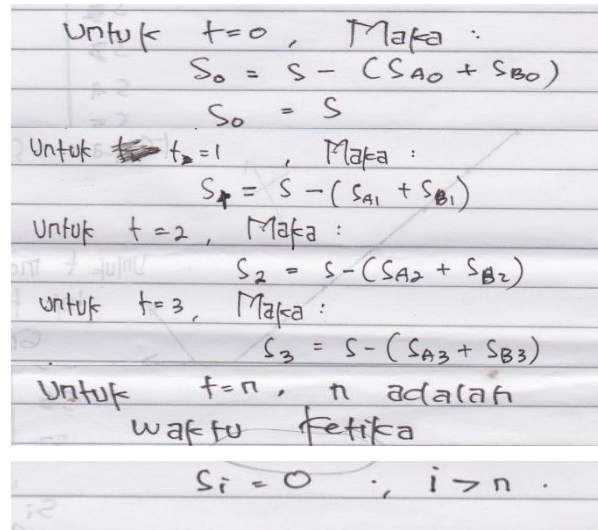 Untuk t=0, Maka :
S₀ = S - (S_A0 + S_B0)
S₀ = S
Untuk t=1, Maka :
S₁ = S - (S_A1 + S_B1)
Untuk t=2, Maka :
S₂ = S - (S_A2 + S_B2)
untuk t=3, Maka :
S₃ = S - (S_A3 + S_B3)
Untuk t=n, n adalah
waktu ketika
Si = 0 ; i > n.